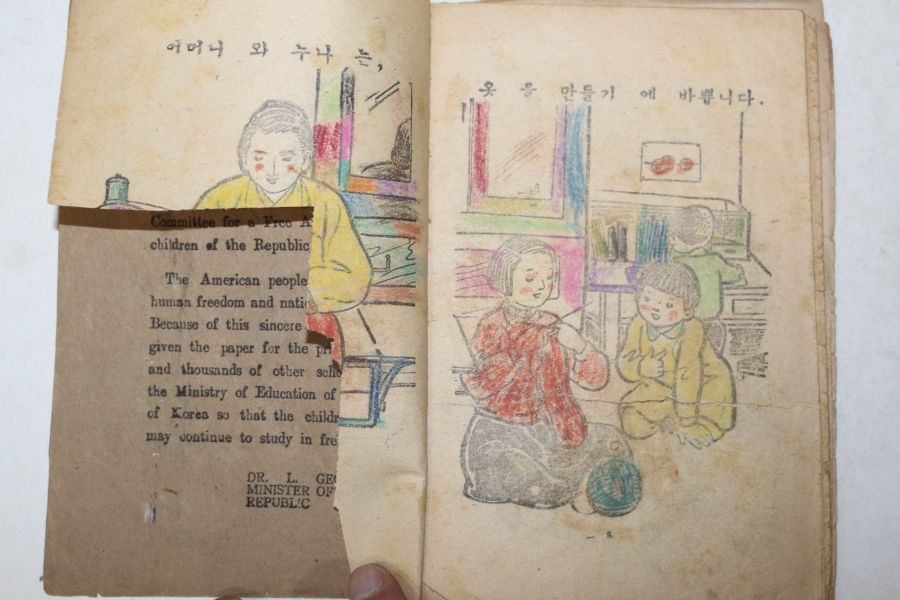 어머니 와 누나 는,
Committee for a Free A
children of the Republic
The American people
human freedom and natio
Because of this sincere
given the paper for the pri
and thousands of other scho
the Ministry of Education of
of Korea so that the childr
may continue to study in fre
DR. L. GEO
MINISTER OF
REPUBLIC
옷 을 만들기 에 바쁩니다.